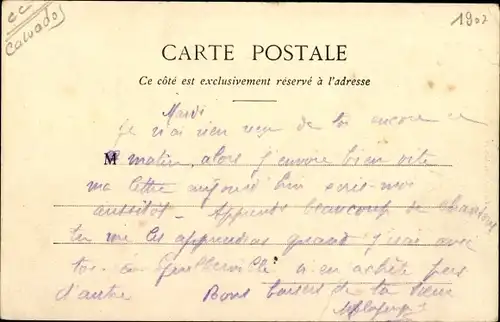 CC
Calvados
1902
CARTE POSTALE
Ce côté est exclusivement réservé à l'adresse
Mardi
Je n'ai rien reçu de toi encore ce
M matin, alors j'envoie bien vite
ma lettre aujourd'hui écris-moi
aussitôt - Apprends beaucoup de chansons
tu me les apprendras quand j'irai avec
toi à n'en achète pas
d'autre Bons baisers de ta sœur